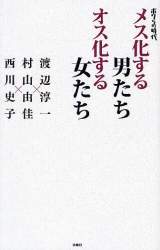 ボクらの時代
メス化する
男たち
オス化する
女たち
渡辺淳一
×
村山由佳
×
西川史子
扶桑社